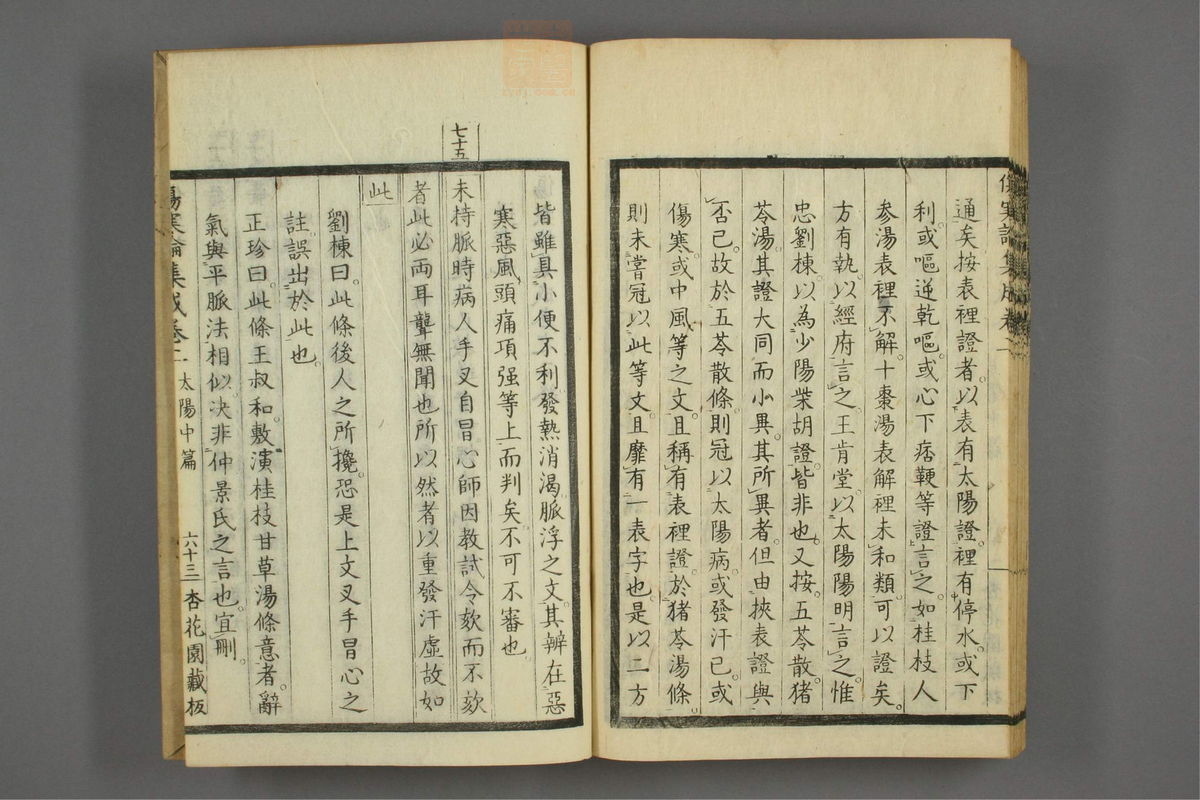 通矣按表裡證者以表有太陽證裡有停水或下
利或嘔逆乾嘔或心下痞鞕等證言之如桂枝人
参湯表裡不解十棗湯表解裡未和類可以證矣
方有執以經府言之王肯堂以太陽陽明言之惟
忠劉棟以為少陽柴胡證皆非也又按五苓散猪
苓湯其證大同而小異其所異者但由挾表證與
否已故於五苓散條則冠以太陽病或發汗已或
傷寒或中風等之文且稱有表裡證於猪苓湯條
則未嘗冠以此等文且靡有一表字也是以二方
皆雖具小便不利發熱消渴脈浮之文其辨在惡
寒惡風頭痛項强等上而判矣不可不審也
七十五
未持脈時病人手叉自冒心師因教試令欬而不欬
者此必両耳聾無聞也所以然者以重發汗虛故如
此
劉棟曰此條後人之所攙恐是上文叉手冒心之
註誤出於此也
正珍曰此條王叔和敷演桂枝甘草湯條意者辭
氣與平脈法相似决非仲景氏之言也宜刪
傷寒論集成卷二 太陽中篇 六十三 杏花園藏板